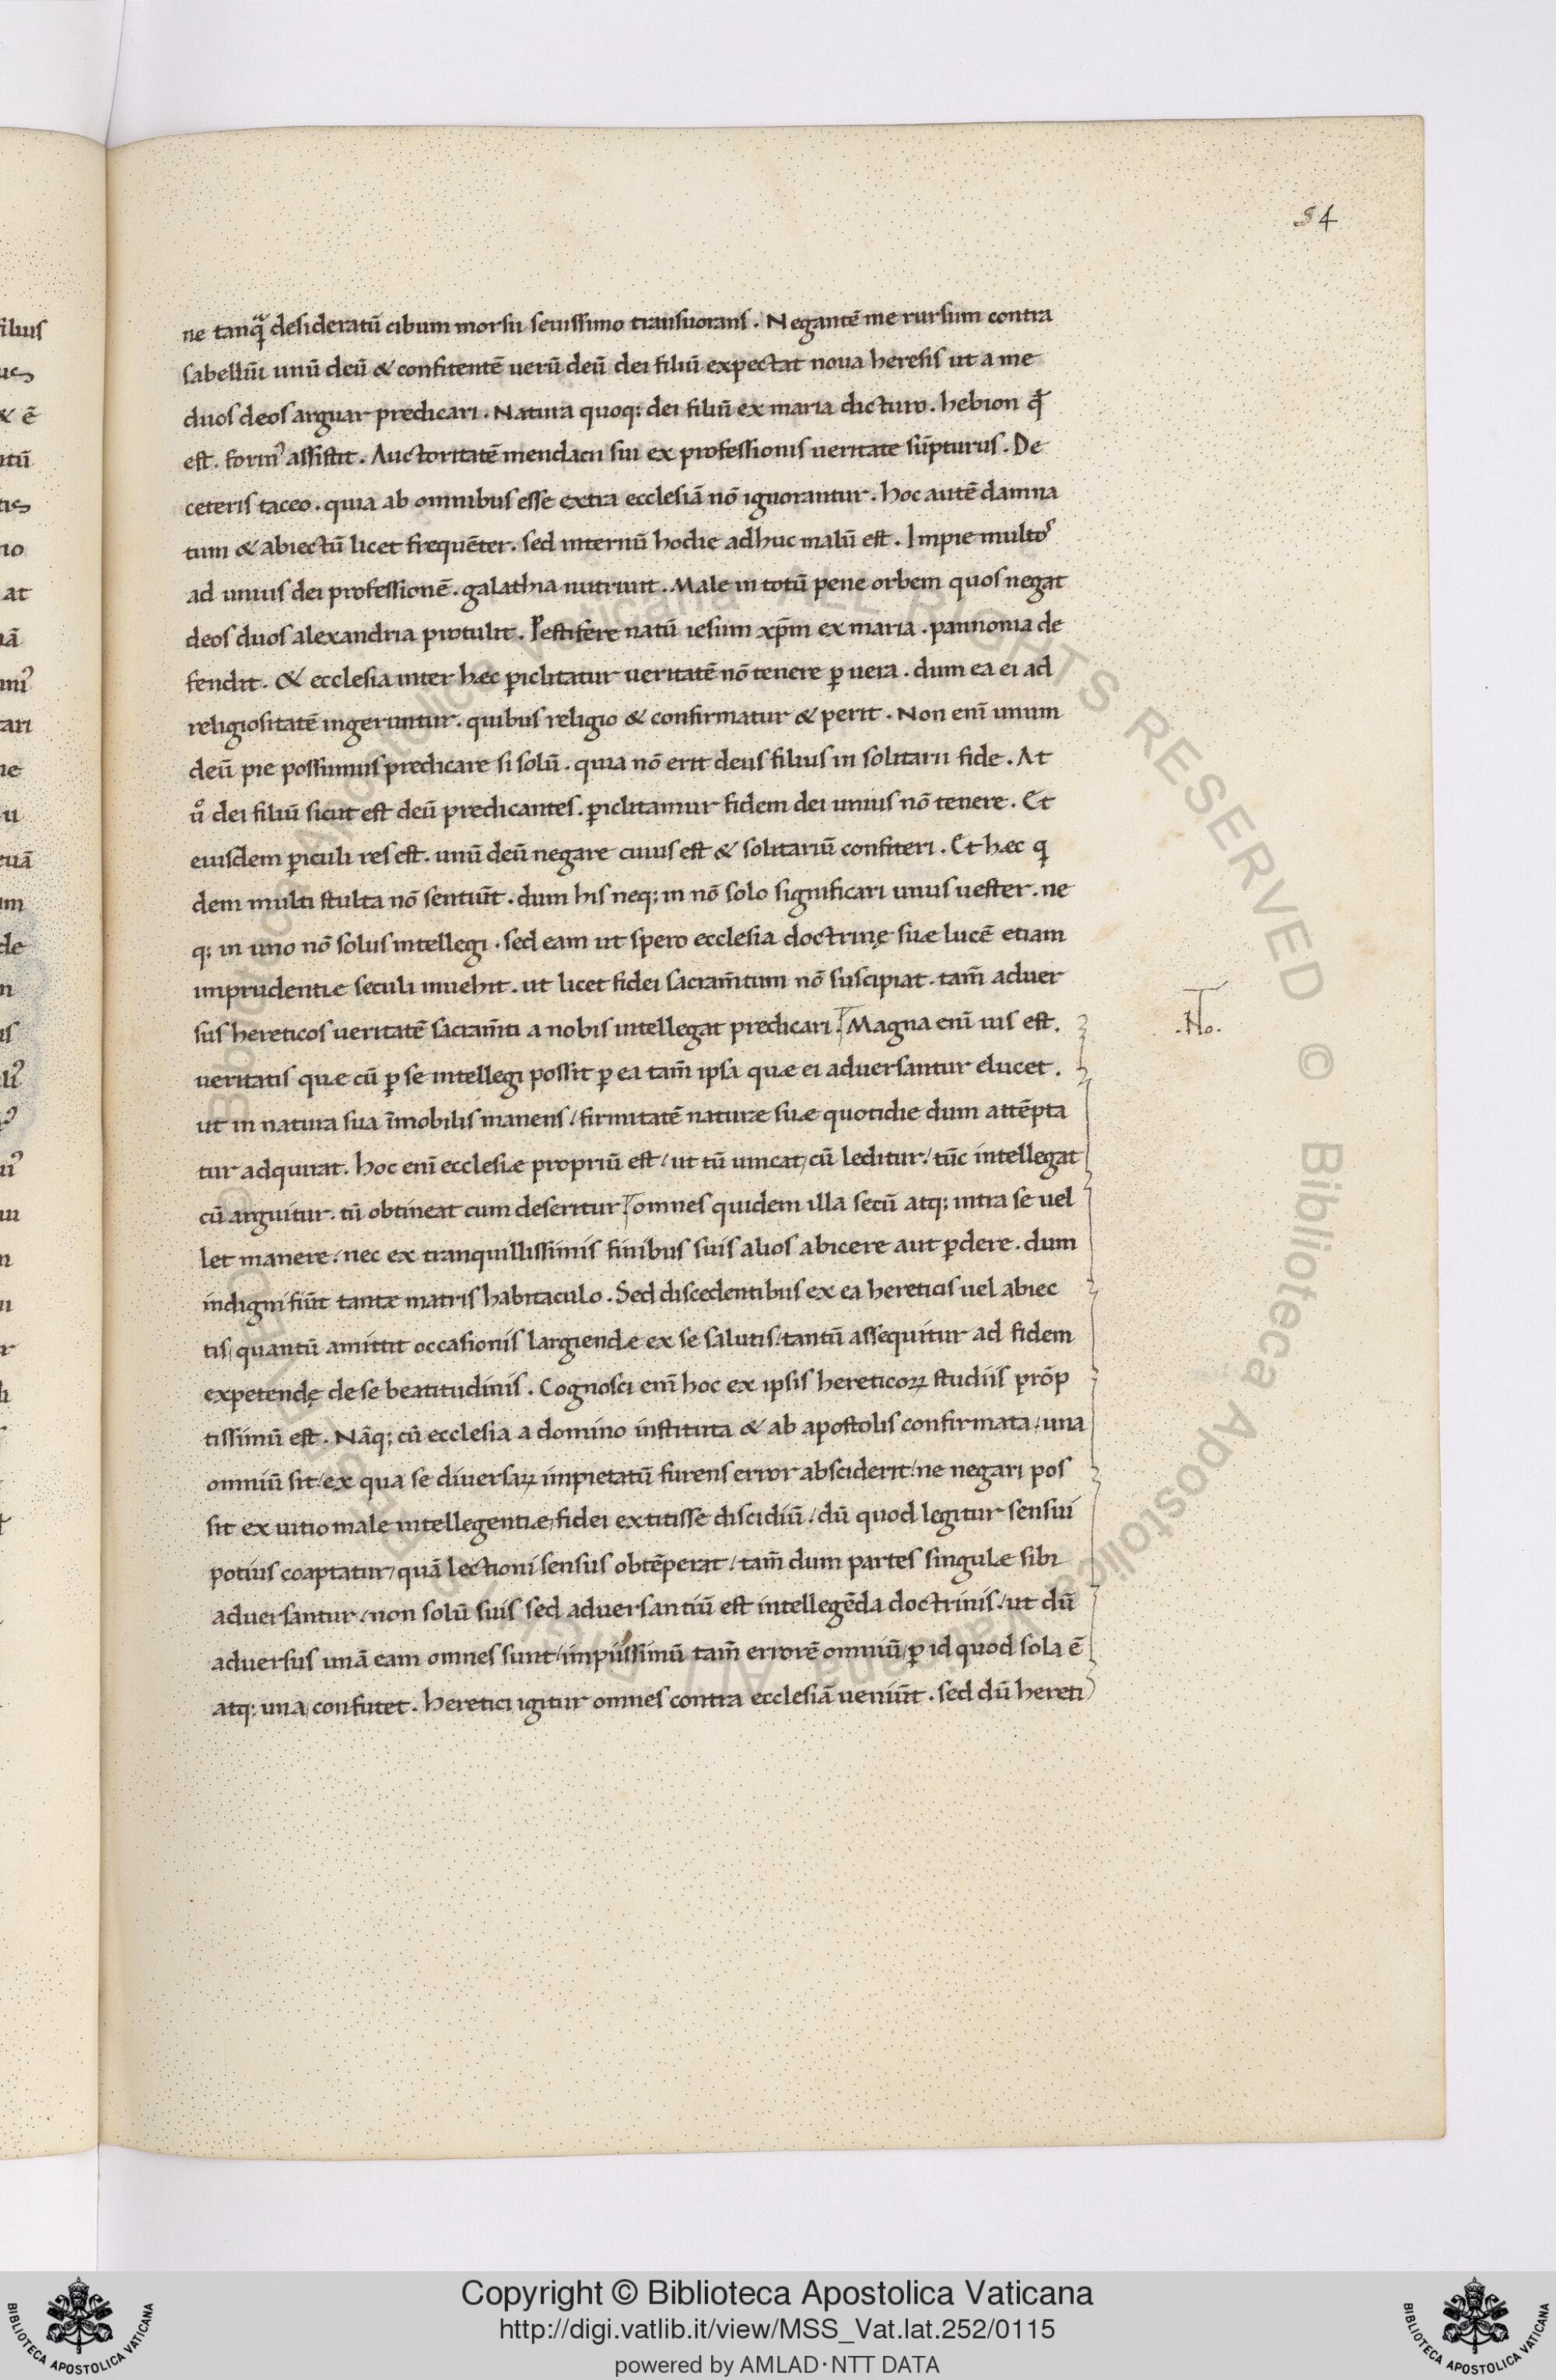 54
filius
ne tanꝗ̃ desideratū cibum morsu seuissimo transuorans . Negantē me rursum contra
sabelliū unū deū & confitentē uerū deū dei filiū expectat noua heresis ut a me
duos deos arguar predicari . Natura quoq; dei filiū ex maria dicturo . hebion ꝗ̃
est . form᾽ assistit . Auctoritatē mendacii sui ex professionis ueritate sūpturus . De
ceteris taceo . quia ab omnibus esse extra ecclesiā nō ignorantur . hoc autē damna
tum & abiectū licet frequēter . sed internū hodie adhuc malū est . Impie multoˢ
ad unius dei professionē . galathia nutriuit . Male in totū pene orbem quos negat
deos duos alexandria protulit . Pestifere natū iesum xp̄m ex maria . pannonia de
fendit . & ecclesia inter hæc ꝑiclitatur ueritatē nō tenere ꝑ uera . dum ea ei ad
religiositatē ingeruntur . quibus religio & confirmatur & perit . Non enī unum
deū pie possumus predicare si solū . quia nō erit deus filius in solitarii fide . At
uͦ dei filiū sicut est deū predicantes . ꝑiclitamur fidem dei unius nō tenere . Et
eiusdem ꝑiculi res est . unū deū negare cuius est & solitariū confiteri . Et hæc ꝗ
dem multi stulta nō sentiūt . dum his neq; in nō solo significari unus uester . ne
q; in uno nō solus intellegi . sed eam ut spero ecclesia doctrinę suæ lucē etiam
imprudentiæ seculi inuehit . ut licet fidei sacram̄tum nō suscipiat . tam̄ aduer
sus hereticos ueritatē sacram̄ti a nobis intellegat predicari . Magna enī uis est .
.No.
ueritatis quæ cū ꝑ se intellegi possit ꝑ ea tam̄ ipsa quæ ei aduersantur elucet .
ut in natura sua īmobilis manens / firmitatē naturæ suæ quotidie dum attēpta
tur adquirat . hoc enī ecclesiæ propriū est / ut tū uincat / cū leditur / tūc intellegat
cū arguitur . tū obtineat cum deseritur omnes quidem illa secū atq; intra se uel
let manere / nec ex tranquillissimis finibus suis alios abicere aut ꝑdere . dum
indigni fiūt tantæ matris habitaculo . Sed discedentibus ex ea hereticis uel abiec
tis / quantū amittit occasionis largiendæ ex se salutis / tantū assequitur ad fidem
expetendę de se beatitudinis . Cognosci enī hoc ex ipsis hereticoꝝ studiis prōp
tissimū est . Nāq; cū ecclesia a domino instituta & ab apostolis confirmata / una
omniū sit / ex qua se diuersaꝝ impietatū furens error absciderit / ne negari pos
sit ex uitio male intellegentiæ / fidei extitisse discidiū / dū quod legitur sensui
potius coaptatur / quā lectioni sensus obtēperat / tam̄ dum partes singulæ sibi
aduersantur / non solū suis sed aduersantiū est intellegēda doctrinis / ut dū
aduersus unā eam omnes sunt / impiissimū tam̄ errorē omniū / ꝑ id quod sola ē
atq; una / confutet . heretici igitur omnes contra ecclesiā ueniūt . sed dū hereti
Copyright © Biblioteca Apostolica Vaticana
http://digi.vatlib.it/view/MSS_Vat.lat.252/0115
powered by AMLAD·NTT DATA
BIBLIOTECA APOSTOLICA VATICANA
BIBLIOTECA APOSTOLICA VATICANA